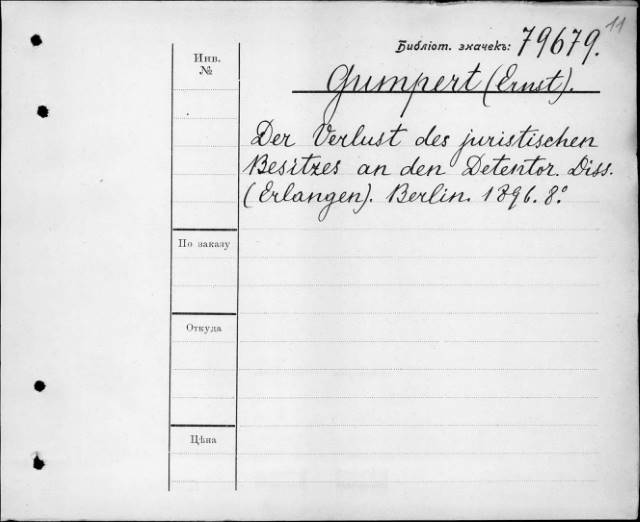 11
Библіот. значекъ: 79679.
Инв.
№
Gumpert (Ernst).
Der Verlust des juristischen
Besitzes an den Detentor. Diss.
(Erlangen). Berlin. 1896. 8º
По заказу
Откуда
Цѣна